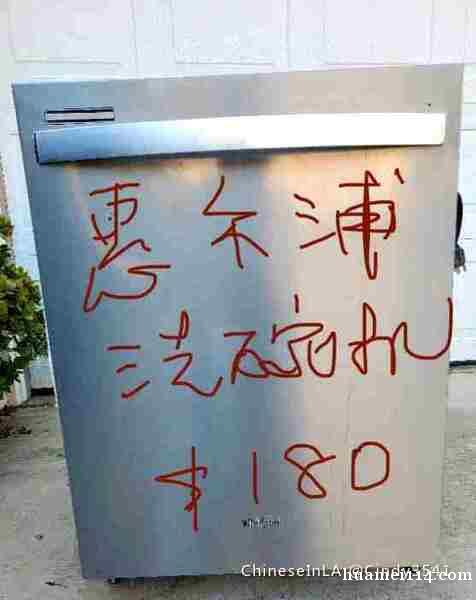 惠尔浦
洗碗机
$180
Whirlpool
ChineseInLA @Cindy9541
huamei114.com